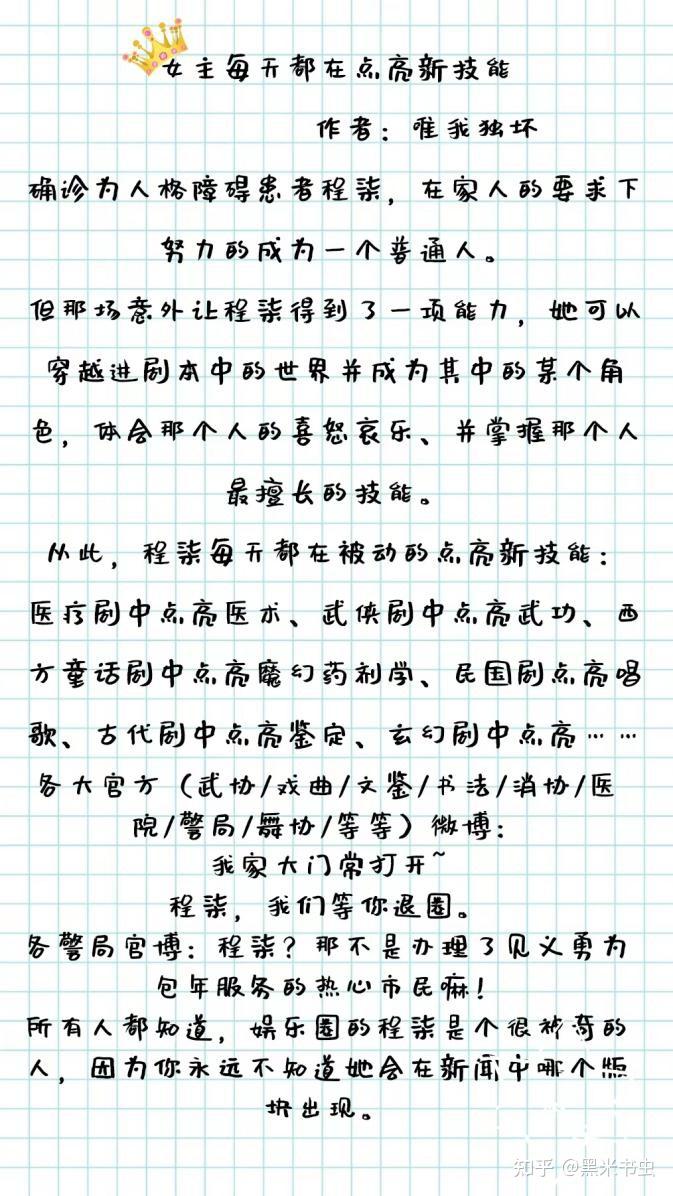 女主每天都在点亮新技能
作者：唯我独坏
确诊为人格障碍患者程柒，在家人的要求下
努力的成为一个普通人。
但那场意外让程柒得到了一项能力，她可以
穿越进剧本中的世界并成为其中的某个角
色，体会那个人的喜怒哀乐、并掌握那个人
最擅长的技能。
从此，程柒每天都在被动的点亮新技能：
医疗剧中点亮医术、武侠剧中点亮武功、西
方童话剧中点亮魔幻药剂学、民国剧点亮唱
歌、古代剧中点亮鉴定、玄幻剧中点亮……
各大官方（武协/戏曲/文鉴/书法/消协/医
院/警局/舞协/等等）微博：
我家大门常打开~
程柒，我们等你退圈。
各警局官博：程柒？那不是办理了见义勇为
包年服务的热心市民嘛！
所有人都知道，娱乐圈的程柒是个很神奇的
人，因为你永远不知道她会在新闻中哪个版
块出现。
知乎 @黑米书虫